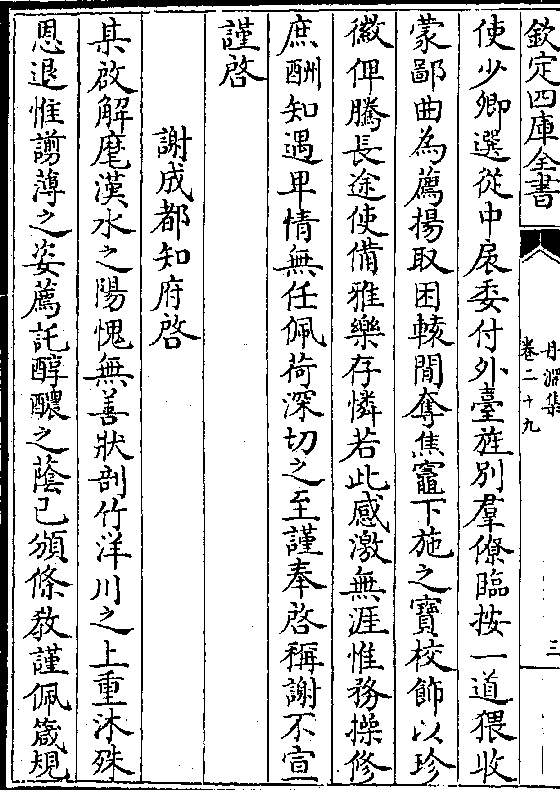 欽定四庫全書
丹淵集
卷二十九
三
使少卿選從中扆委付外臺旌別羣僚臨按一道猥收
蒙鄙曲為薦揚取困轅閒奪焦竈下施之寶校飾以珍
徽俾騰長途使備雅樂存憐若此感激無涯惟務操修
庶酬知遇卑情無任佩荷深切之至謹奉啓稱謝不宣
謹啓
謝成都知府啓
某啟解麾漢水之陽愧無善狀剖竹洋川之上重沐殊
恩退惟謭薄之姿薦託醇醲之蔭已頒條教謹佩箴規